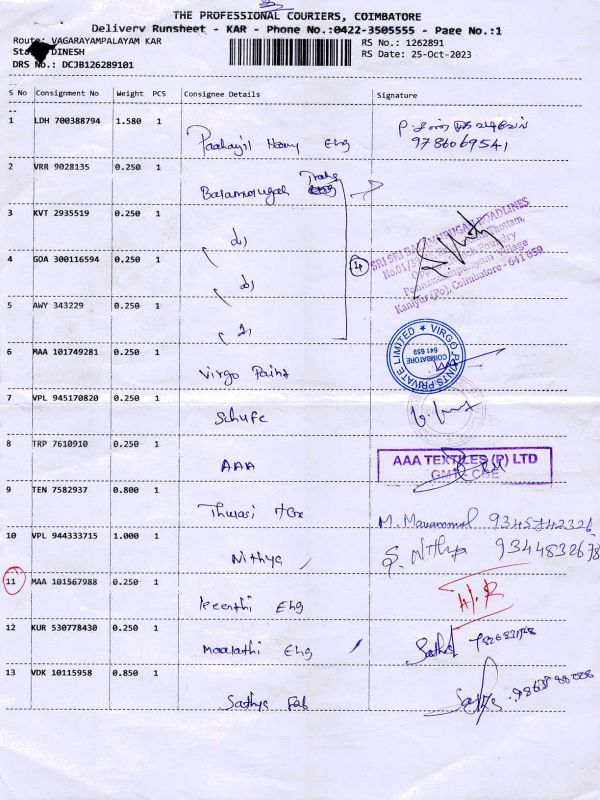 THE PROFESSIONAL COURIERS, COIMBATORE
Delivery Runsheet - KAR - Phone No.:0422-3505555 - Page No.:1
Route: VAGARAYAMPALAYAM KAR
RS No.: 1262891
DINESH
RS Date: 25-Oct-2023
DRS No.: DCJB126289101
S No Consignment No Weight PCS Consignee Details Signature
1 LDH 700388794 1.580 1 Eng
9786069541
2 VRR 9028135 0.250 1 Balamurugan Trans
3 KVT 2935519 0.250 1
SRI SRI BALAMURUGAN ROADLINES
4 GOA 300116594 0.250 1 4
Kaniyur (Po), Coimbatore - 641 659
5 AWY 343229 0.250 1
6 MAA 101749281 0.250 1 Virgo Paint
VIRGO PAINTS PRIVATE LIMITED
COIMBATORE
641 659
7 VPL 945170820 0.250 1
8 TRP 7610910 0.250 1 AAA
AAA TEXTILES (P) LTD
9 TEN 7582937 0.800 1 Thulasi
M. 9345742326
10 VPL 944333715 1.000 1 Nithya
S. Nithya 9344832678
11 MAA 101567988 0.250 1 Keerthi Eng
12 KUR 530778430 0.250 1 Eng
13 VDK 10115958 0.850 1 Sathya Fab